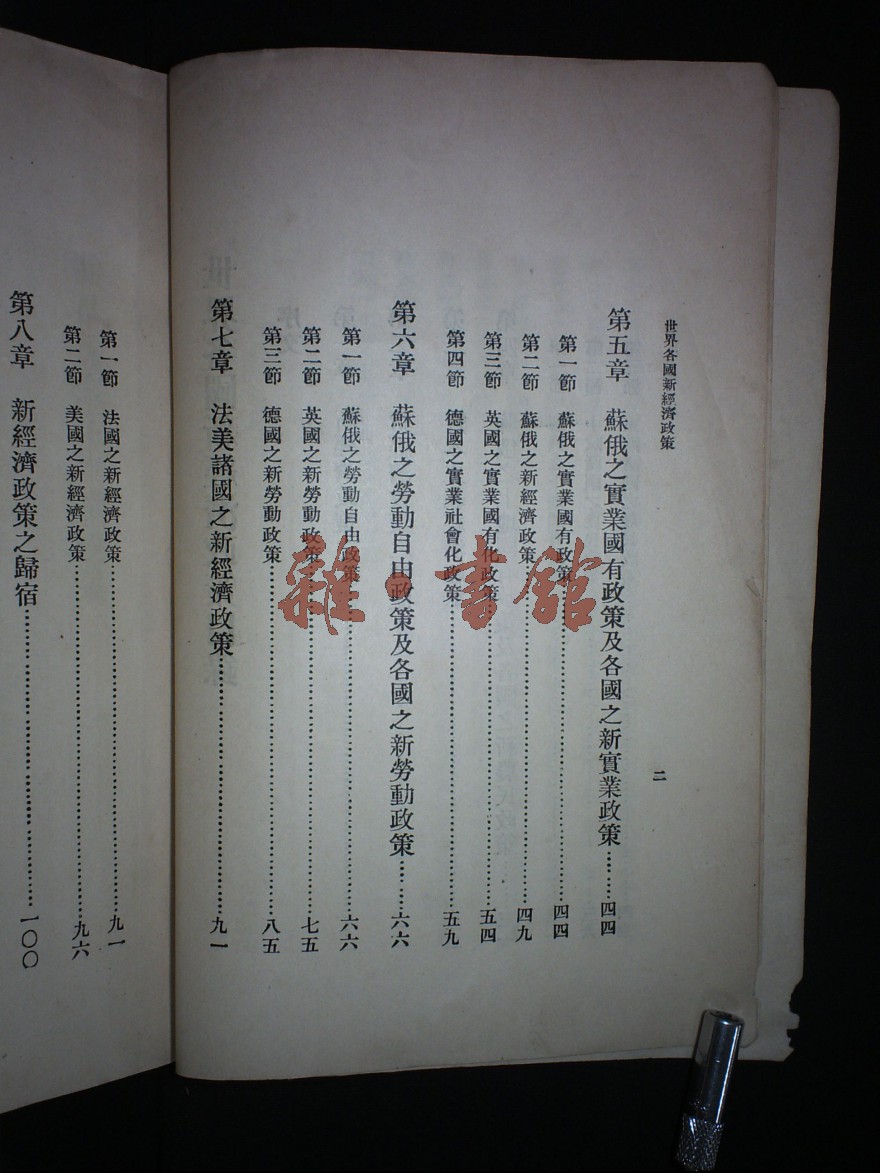 世界各國新經濟政策
二
第五章 蘇俄之實業國有政策及各國之新實業政策……四四
第一節 蘇俄之實業國有政策……四四
第二節 蘇俄之新經濟政策……四九
第三節 英國之實業國有化政策……五四
第四節 德國之實業社會化政策……五九
第六章 蘇俄之勞動自由政策及各國之新勞動政策……六六
第一節 蘇俄之勞動自由政策……六六
第二節 英國之新勞動政策……七五
第三節 德國之新勞動政策……八五
第七章 法美諸國之新經濟政策……九一
第一節 法國之新經濟政策……九一
第二節 美國之新經濟政策……九六
第八章 新經濟政策之歸宿……一〇〇
雜·書館